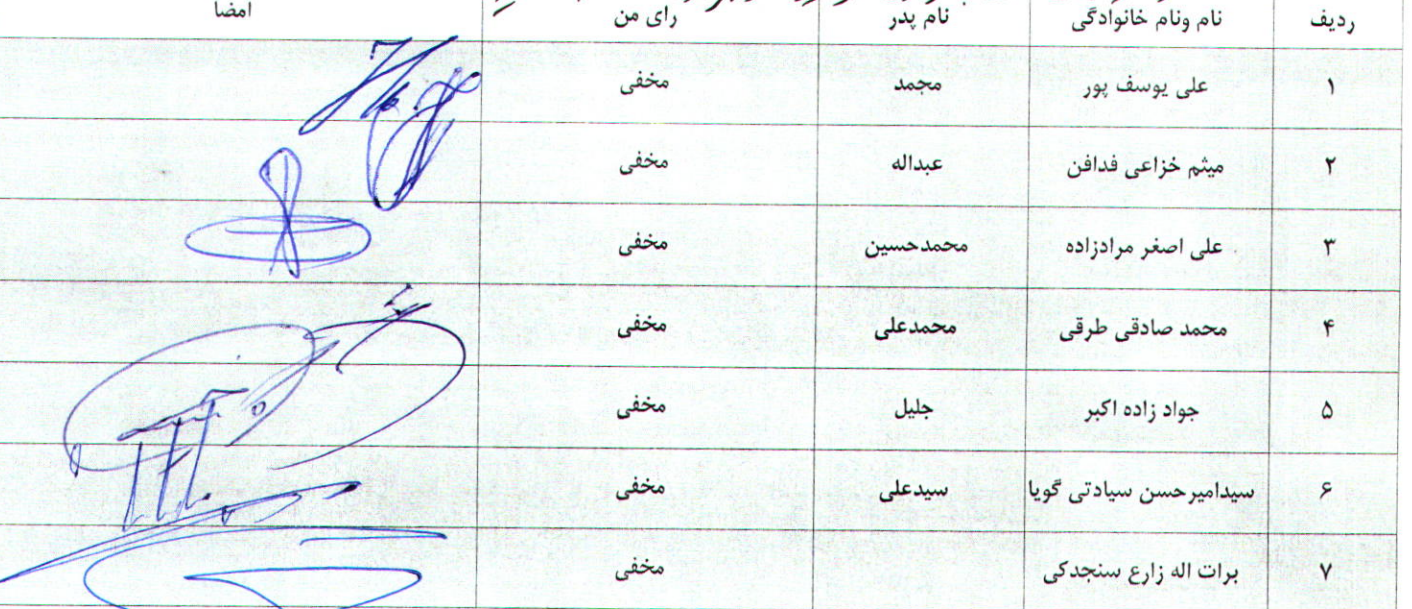 ردیف نام ونام خانوادگی نام پدر رای من امضا
۱ علی یوسف پور محمد مخفی
۲ میثم خزاعی فدافن عبداله مخفی
۳ علی اصغر مرادزاده محمدحسین مخفی
۴ محمد صادقی طرقی محمدعلی مخفی
۵ جواد زاده اکبر جلیل مخفی
۶ سیدامیرحسن سیادتی گویا سیدعلی مخفی
۷ برات اله زارع سنجدکی مخفی